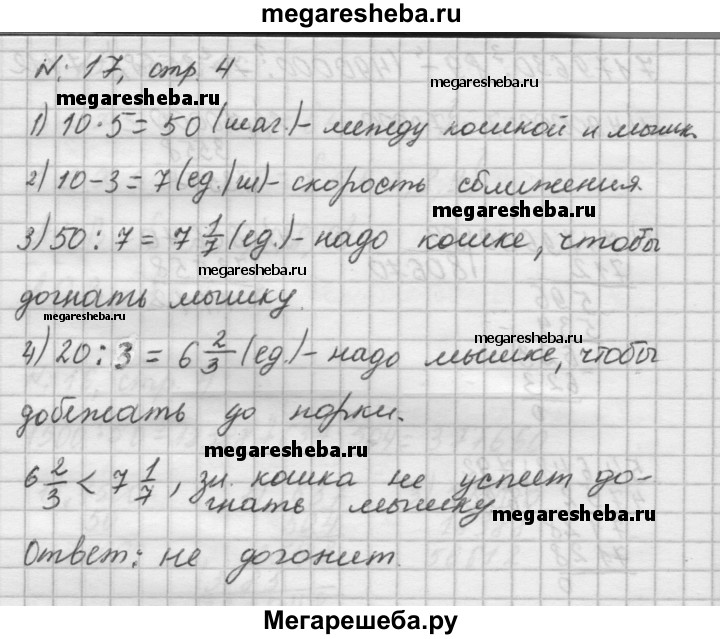 megaresheba.ru
N: 17, стр. 4
megaresheba.ru
megaresheba.ru
1) 10·5=50 (шаг.)- между кошкой и мышк.
2) 10-3=7(ед./ш)- скорость сближения.
megaresheba.ru
3) 50:7=7 1/7 (ед.)- надо кошке, чтобы
megaresheba.ru
догнать мышку.
megaresheba.ru
megaresheba.ru
4) 20:3=6 2/3 (ед.)- надо мышке, чтобы
добежать до норки.
megaresheba.ru
6 2/3 < 7 1/7, зн. кошка не успеет до-
гнать мышку
megaresheba.ru
Ответ: не догонит.
Мегарешеба.ру